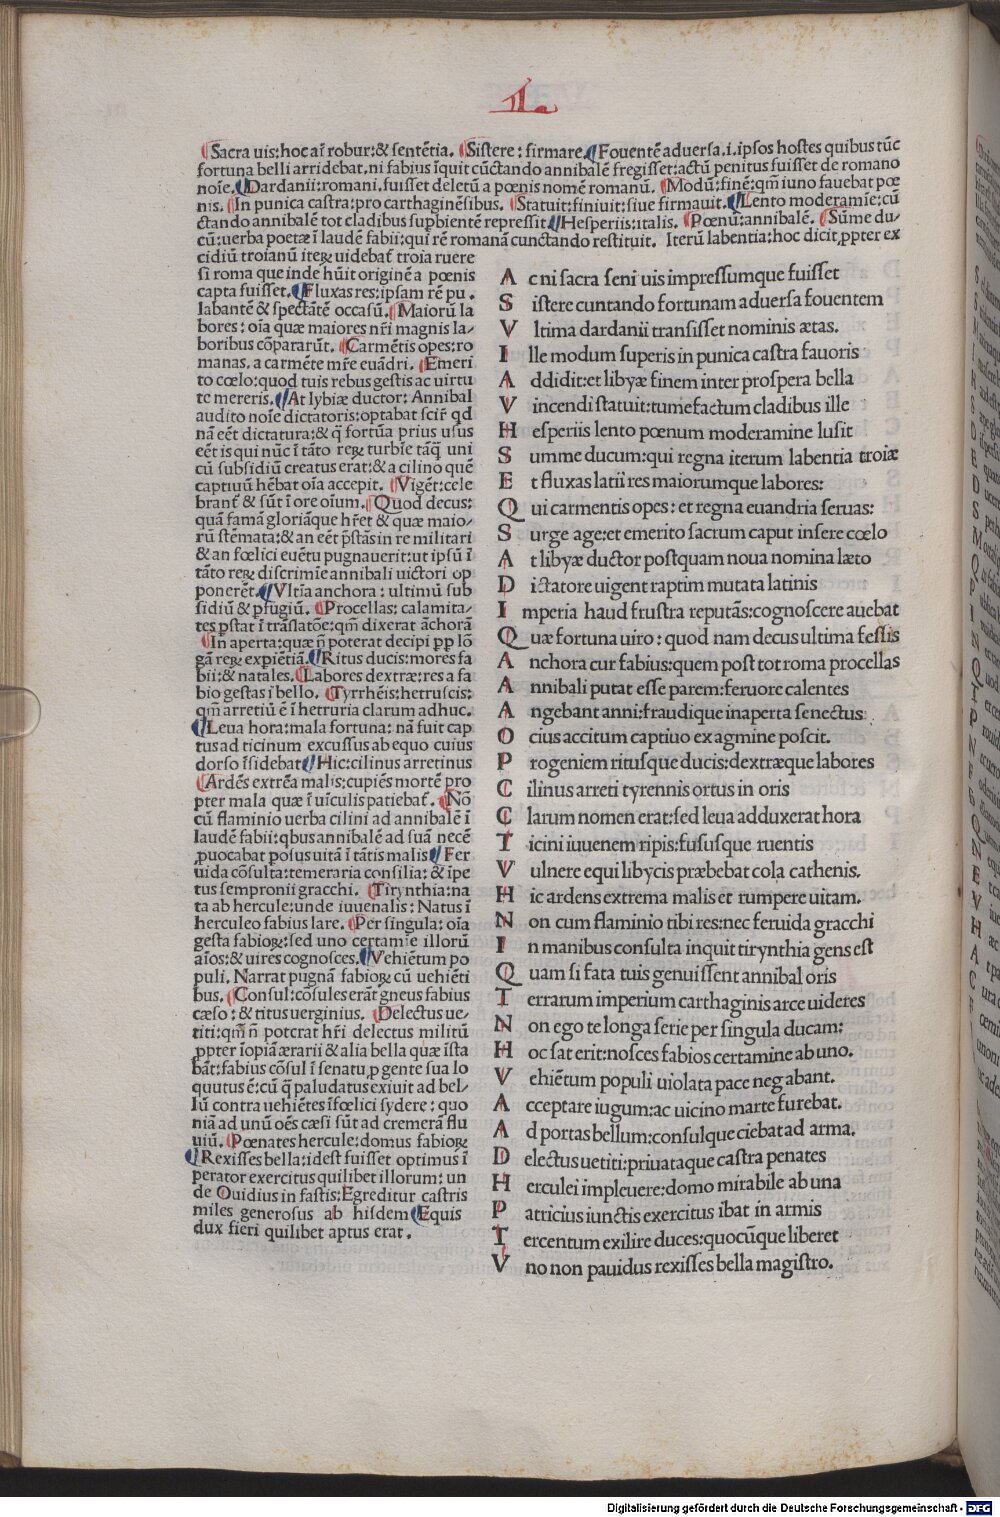 L
Sacra uis:hoc aĩ robur:& sentẽtia. Sistere: firmare. Fouentẽ aduersa.i.ipsos hostes quibus tũc
fortuna belli arridebat.ni fabius ĩquit cũctando annibalẽ fregisset:actũ penitus fuisset de romano
noĩe. Dardanii:romani.fuisset deletũ a pœnis nomẽ romanũ. Modũ:finẽ:qm̃ iuno fauebat pœ
nis. In punica castra:pro carthaginẽsibus. Statuit:finiuit:siue firmauit. Lento moderamĩe:cũ
ctando annibalẽ tot cladibus supbientẽ repressit Hesperiis:italis. Pœnũ:annibalẽ. Sũme du/
cũ:uerba poetæ ĩ laudẽ fabii:qui rẽ romanã cunctando restituit. Iterũ labentia:hoc dicit ꝓpter ex
cidiũ troianũ iteꝝ uidebat̃ troia ruere
si roma que inde hũit originẽ a pœnis
capta fuisset. Fluxas res:ipsam rẽ pu.
labantẽ & spectãtẽ occasũ. Maiorũ la
bores: oĩa quæ maiores nr̃i magnis la/
boribus cõpararũt. Carmẽtis opes:ro
manas. a carmẽte mr̃e euãdri. Emeri
to cœlo:quod tuis rebus gestis ac uirtu
te mereris. At lybiæ ductor: Annibal
audito noĩe dictatoris:optabat scir̃ qd
nã eẽt dictatura:& q̃ fortũa prius usus
eẽt is qui nũc ĩ tãto reꝝ turbĩe tãq̃ uni
cũ subsidiũ creatus erat:& a cilino quẽ
captiuũ hẽbat oĩa accepit. Vigẽt:cele
brant̃ & sũt ĩ ore oĩum. Quod decus:
quã famã gloriãque hr̃et & quæ maio/
rũ stẽmata:& an eẽt p̃stãs in re militari
& an fœlici euẽtu pugnauerit:ut ipsũ ĩ
tãto reꝝ discrimĩe annibali uictori op
ponerẽt. Vltĩa anchora: ultimũ sub
sidiũ & ꝓfugiũ. Procellas: calamita/
tes.ꝑstat ĩ trãslatõe:qm̃ dixerat ãchorã
In aperta:quæ nõ poterat decipi ꝓp lõ
gã reꝝ expiẽtiã. Ritus ducis:mores fa
bii:& natales. Labores dextræ:res a fa
bio gestas ĩ bello. Tyrrhẽis:hetruscis:
qm̃ arretiũ ẽ ĩ hetruria clarum adhuc.
Leua hora:mala fortuna: nã fuit cap
tus ad ticinum excussus ab equo cuius
dorso ĩsidebat Hic:cilinus arretinus
Ardẽs extrẽa malis:cupiẽs mortẽ pro
pter mala quæ ĩ uĩculis patiebat̃. Nõ
cũ flaminio uerba cilini ad annibalẽ ĩ
laudẽ fabii:qbus annibalẽ ad suã necẽ
ꝓuocabat posus uitã ĩ tãtis malis Fer
uida cõsulta:temeraria consilia: & ĩpe
tus sempronii gracchi. Tirynthia:na
ta ab hercule:unde iuuenalis: Natus ĩ
herculeo fabius lare. Per singula: oĩa
gesta fabioꝝ:sed uno certamĩe illorũ
aĩos:& uires cognosces. Vehiẽtum po
puli. Narrat pugnã fabioꝝ cũ uehiẽti
bus. Consul:cõsules erãt gneus fabius
cæso: & titus uerginius. Delectus ue/
titi:qm̃ ñ potcrat hr̃i delectus militũ
ꝓpter ĩopiã ærarii & alia bella quæ ĩsta
bãt:fabius cõsul ĩ senatu ꝓ gente sua lo
quutus ẽ:cũ q̃ paludatus exiuit ad bel/
lũ contra uehiẽtes ĩfœlici sydere: quo
niã ad unũ oẽs cæsi sũt ad cremerã flu
uiũ. Pœnates hercule:domus fabioꝝ
Rexisses bella:idest fuisset optimus ĩ
perator exercitus quilibet illorum: un
de Ouidius in fastis:Egreditur castris
miles generosus ab hisdem Equis
dux fieri quilibet aptus erat.
A c ni sacra seni uis impressumque fuisset
S istere cuntando fortunam aduersa fouentem
V ltima dardanii transisset nominis ætas.
I lle modum superis in punica castra fauoris
A ddidit:et libyæ finem inter prospera bella
V incendi statuit:tumefactum cladibus ille
H esperiis lento pœnum moderamine lusit
S umme ducum:qui regna iterum labentia troiæ
E t fluxas latii res maiorumque labores:
Q ui carmentis opes: et regna euandria seruas:
S urge age:et emerito sacrum caput insere cœlo
A t libyæ ductor postquam noua nomina læto
D ictatore uigent raptim mutata latinis
I mperia haud frustra reputãs:cognoscere auebat
Q uæ fortuna uiro: quod nam decus ultima fessis
A nchora cur fabius:quem post tot roma procellas
A nnibali putat esse parem:feruore calentes
A ngebant anni:fraudique inaperta senectus:
O cius accitum captiuo ex agmine poscit.
P rogeniem ritusque ducis:dextræque labores
C ilinus arreti tyrennis ortus in oris
C larum nomen erat:sed leua adduxerat hora
T icini iuuenem ripis:fususque ruentis
V ulnere equi libycis præbebat cola cathenis.
H ic ardens extrema malis et rumpere uitam.
N on cum flaminio tibi res:nec feruida gracchi
I n manibus consulta inquit tirynthia gens est
Q uam si fata tuis genuissent annibal oris
T errarum imperium carthaginis arce uideres
N on ego te longa serie per singula ducam:
H oc sat erit:nosces fabios certamine ab uno.
V ehiẽtum populi uiolata pace negabant.
A cceptare iugum:ac uicino marte furebat.
A d portas bellum:consulque ciebat ad arma.
D electus uetiti:priuataque castra penates
H erculei impleuere:domo mirabile ab una
P atricius iunctis exercitus ibat in armis
T ercentum exilire duces:quocũque liberet
V no non pauidus rexisses bella magistro.
Digitalisierung gefördert durch die Deutsche Forschungsgemeinschaft - DFG